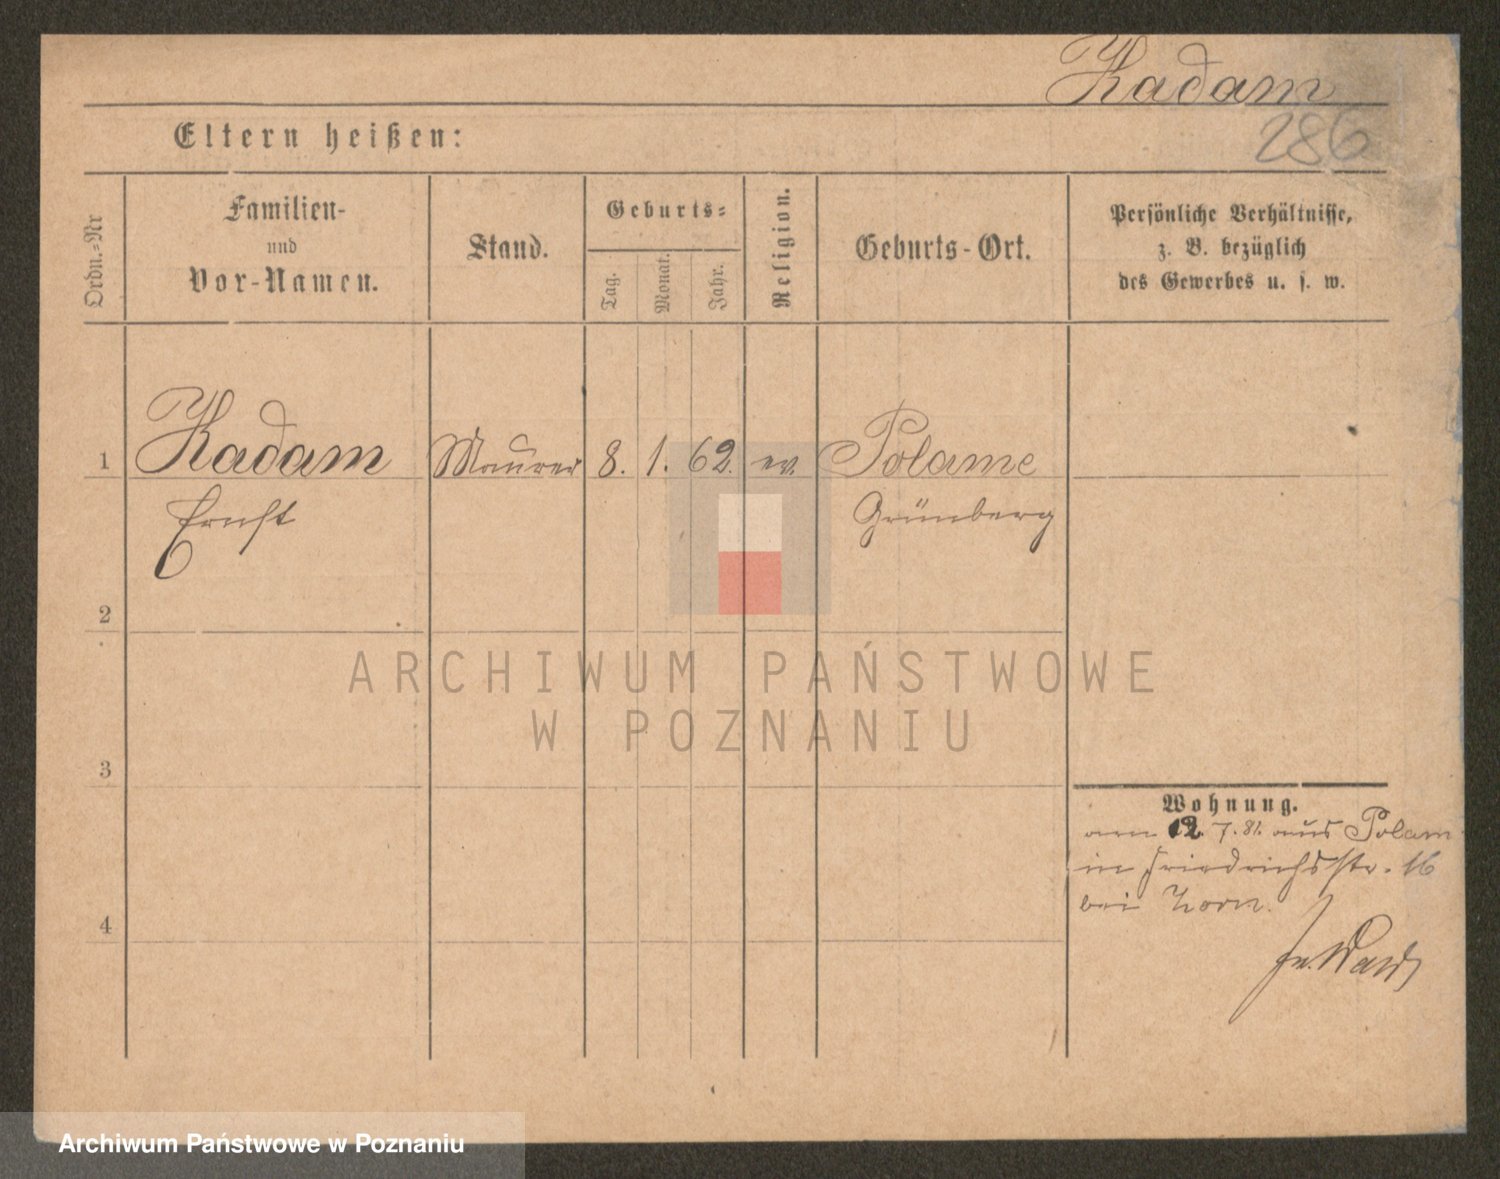 Kadam
286
Eltern heißen:
Ordn.-Nr
Familien-
und
Vor-Namen.
Stand.
Geburts-
Tag.
Monat.
Jahr.
Religion.
Geburts-Ort.
Persönliche Verhältnisse,
z. B. bezüglich
des Gewerbes u. s. w.
1
Kadam
Maurer
8.
1.
62.
ev.
Polame
Ernst
Grünberg
2
ARCHIWUM PAŃSTWOWE
W POZNANIU
3
4
Wohnung.
am 12. 7. 81. aus Polam
in Friedrichsstr. 16
bei Zorn.
Archiwum Państwowe w Poznaniu